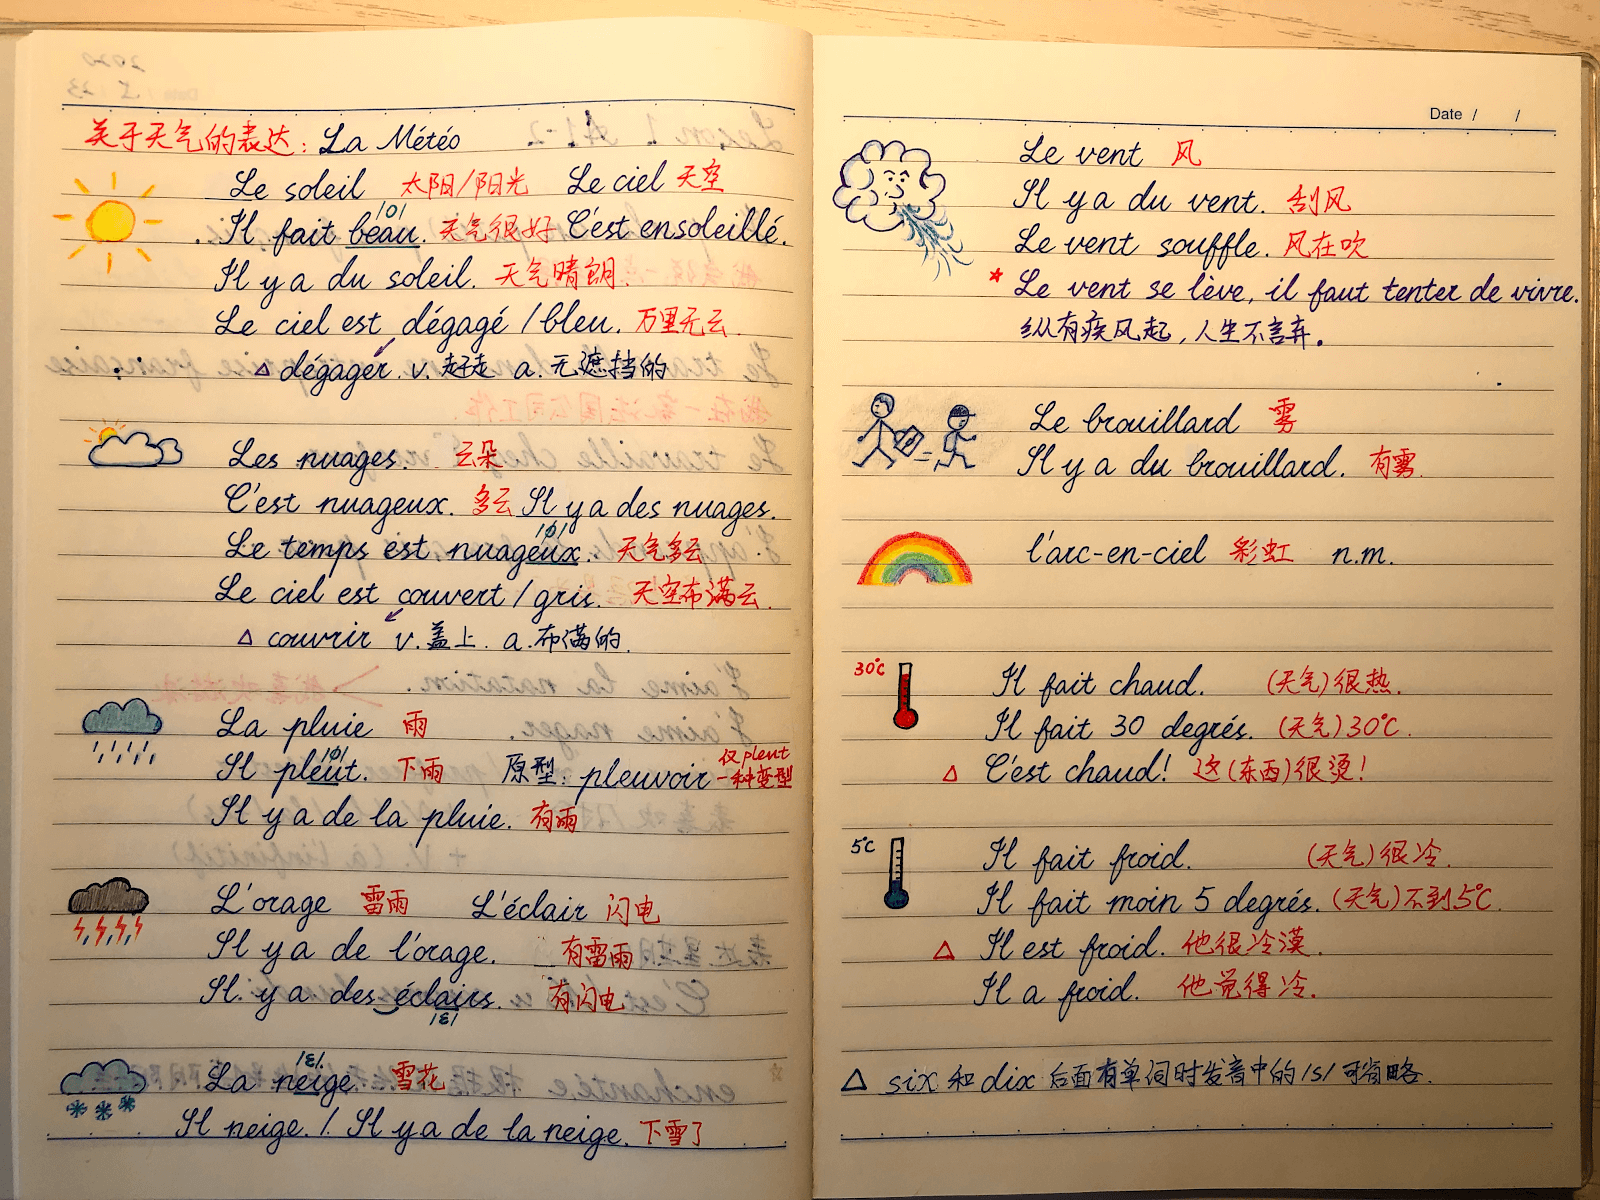 关于天气的表达: La Météo
Le soleil 太阳/阳光 Le ciel 天空
/o/
Il fait beau. 天气很好 C'est ensoleillé.
Il y a du soleil. 天气晴朗.
Le ciel est dégagé / bleu. 万里无云.
△ dégager. v. 赶走 a. 无遮挡的
Les nuages. 云朵
C'est nuageux. 多云 Il y a des nuages.
/ø/
Le temps est nuageux. 天气多云
Le ciel est couvert / gris. 天空布满云.
△ couvrir v. 盖上. a. 布满的.
La pluie 雨
/ø/
Il pleut. 下雨 原型: pleuvoir 仅pleut
一种变型
Il y a de la pluie. 有雨
L'orage 雷雨 L'éclair 闪电
Il y a de l'orage. 有雷雨
Il y a des éclairs. 有闪电
/ɛ/
/ɛ/
La neige. 雪花
Il neige. /. Il y a de la neige. 下雪了
Date / /
Le vent 风
Il y a du vent. 刮风
Le vent souffle. 风在吹
* Le vent se lève, il faut tenter de vivre.
纵有疾风起, 人生不言弃。
Le brouillard 雾
Il y a du brouillard. 有雾.
l'arc-en-ciel 彩虹 n.m.
30℃ Il fait chaud. (天气)很热.
Il fait 30 degrés. (天气)30℃.
△ C'est chaud! 这(东西)很烫!
5℃ Il fait froid. (天气)很冷.
Il fait moin 5 degrés. (天气)不到5℃.
△ Il est froid. 他很冷漠.
Il a froid. 他觉得冷.
△ six 和 dix 后面有单词时发音中的/s/可省略.